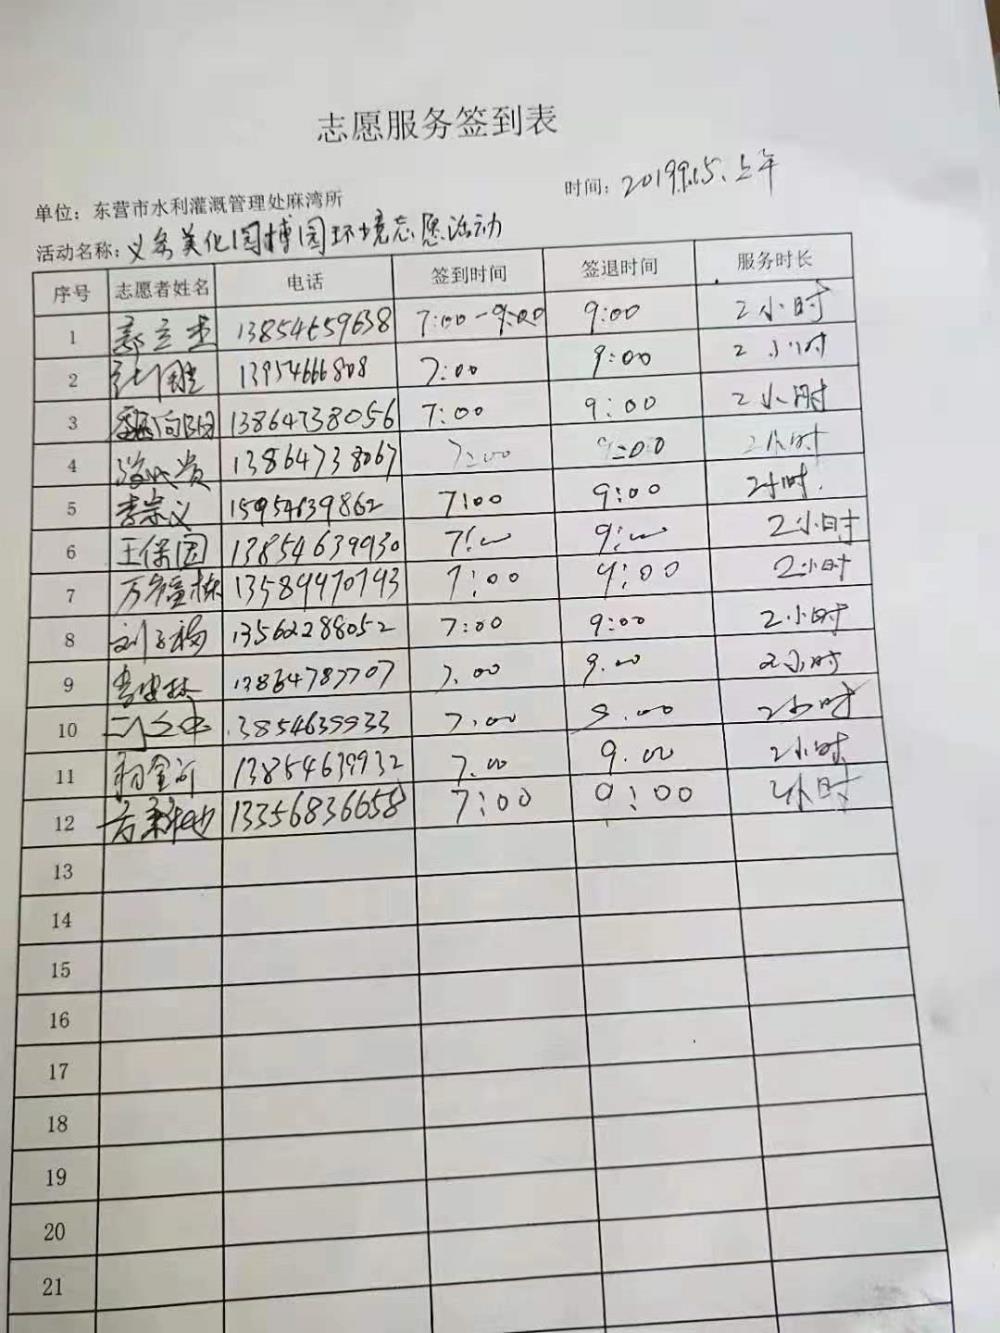 志愿服务签到表
时间：2019.9.15.上午
单位：东营市水利灌溉管理处麻湾所
活动名称：义务美化园博园环境志愿活动
序号 志愿者姓名 电话 签到时间 签退时间 服务时长
1 13854659638 7:00-9:00 9:00 2小时
2 13954666808 7:00 9:00 2小时
3 魏向阳 13864738056 7:00 9:00 2小时
4 13864738067 7:00 9:00 2小时
5 李宗义 15954639862 7:00 9:00 2小时
6 王保国 13854639930 7:00 9:00 2小时
7 13589970793 7:00 9:00 2小时
8 13562288052 7:00 9:00 2小时
9 13864787707 7:00 9:00 2小时
10 13854639933 7:00 9:00 2小时
11 13854639932 7.00 9.00 2小时
12 13356836658 7:00 9:00 2小时
13
14
15
16
17
18
19
20
21